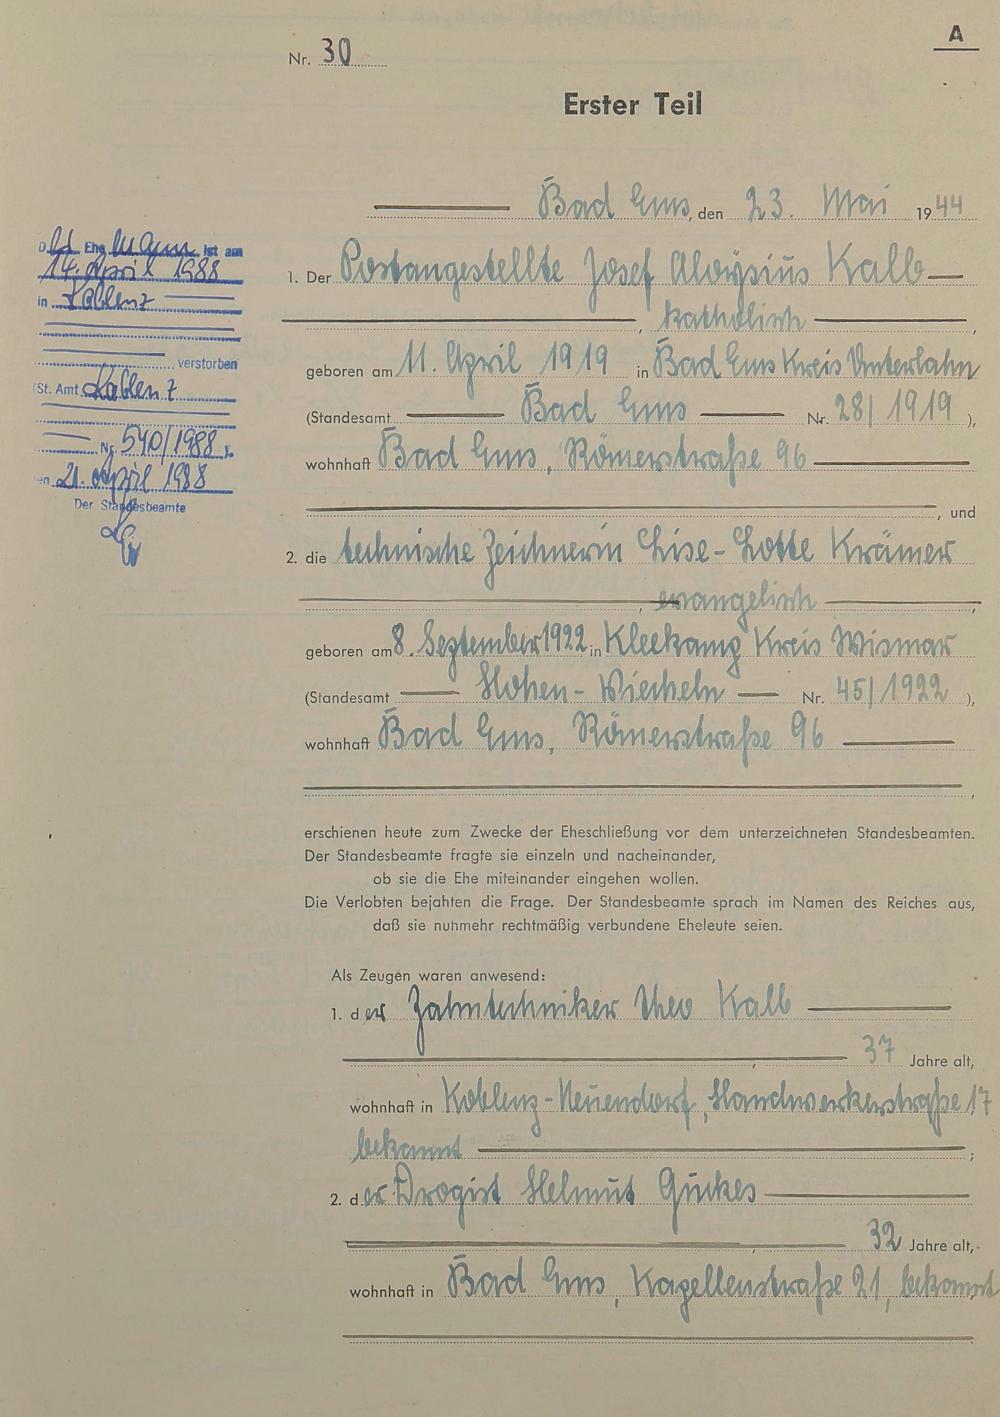 A
Nr. 30
Erster Teil
Bad Ems, den 23. Mai 1944
1. Der Postangestellte Josef Aloysius Kalb
, katholisch ,
geboren am 11. April 1919 in Bad Ems Kreis Unterlahn
(Standesamt Bad Ems Nr. 28/1919 ),
wohnhaft Bad Ems, Römerstraße 96
, und
2. die technische Zeichnerin Lise-Lotte Krämer
, evangelisch ,
geboren am 8. September 1922 in Kleekamp Kreis Wismar
(Standesamt Hohen-Viecheln Nr. 45/1922 ),
wohnhaft Bad Ems, Römerstraße 96
,
erschienen heute zum Zwecke der Eheschließung vor dem unterzeichneten Standesbeamten.
Der Standesbeamte fragte sie einzeln und nacheinander,
ob sie die Ehe miteinander eingehen wollen.
Die Verlobten bejahten die Frage. Der Standesbeamte sprach im Namen des Reiches aus,
daß sie nunmehr rechtmäßig verbundene Eheleute seien.
Als Zeugen waren anwesend:
1. der Zahntechniker Theo Kalb
, 37 Jahre alt,
wohnhaft in Koblenz-Neuendorf, Handwerkerstraße 17
bekannt ;
2. der Drogist Helmut Guckes
, 32 Jahre alt,
wohnhaft in Bad Ems, Kapellenstraße 21, bekannt
D. Ehemann ist am
14. April 1988
in Koblenz
verstorben
(St. Amt Koblenz
Nr. 540/1988 ).
en 21. April 1988
Der Standesbeamte